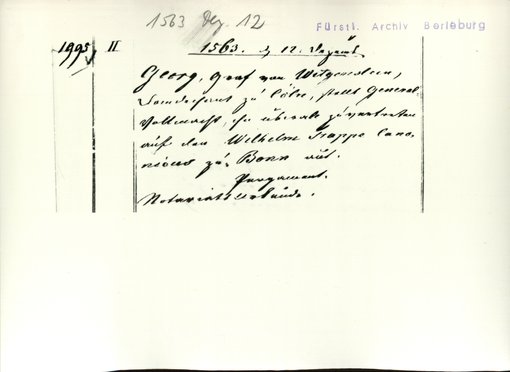 1563 Dez. 12
Fürstl. Archiv Berleburg
1995 II 1563. d. 12. Dezemb.
Georg, Graf von Witgenstein,
Domdechant zu Cöln, stellt General
Vollmacht, ihn überall zu vertreten
auf den Wilhelm Trappe Cano-
nicus zu Bonn aus.
Pergament.
Notariatsurkunde.